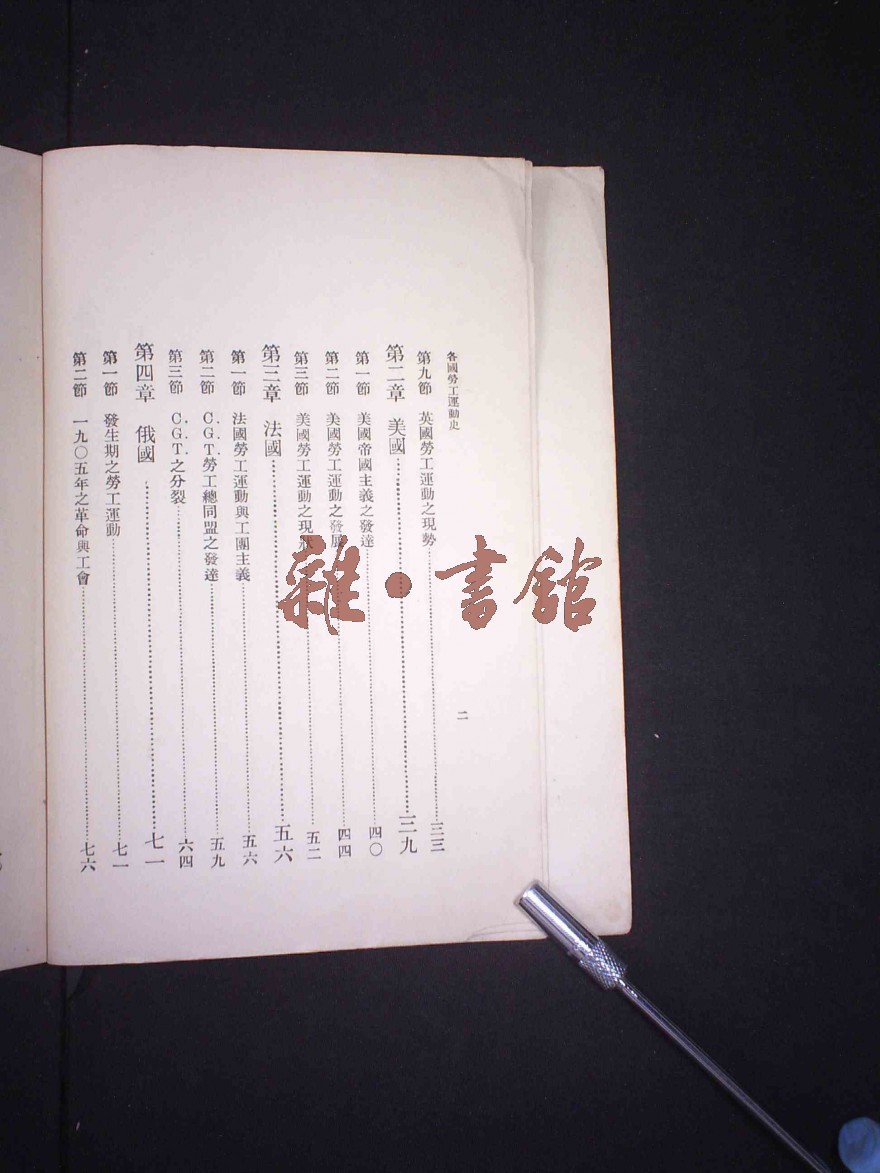 各國勞工運動史
二
第九節 英國勞工運動之現勢 三三
第二章 美國 三九
第一節 美國帝國主義之發達 四〇
第二節 美國勞工運動之發展 四四
第三節 美國勞工運動之現狀 五二
第三章 法國 五六
第一節 法國勞工運動與工團主義 五六
第二節 C.G.T.勞工總同盟之發達 五九
第三節 C.G.T.之分裂 六四
第四章 俄國 七一
第一節 發生期之勞工運動 七一
第二節 一九〇五年之革命與工會 七六
雜·書館